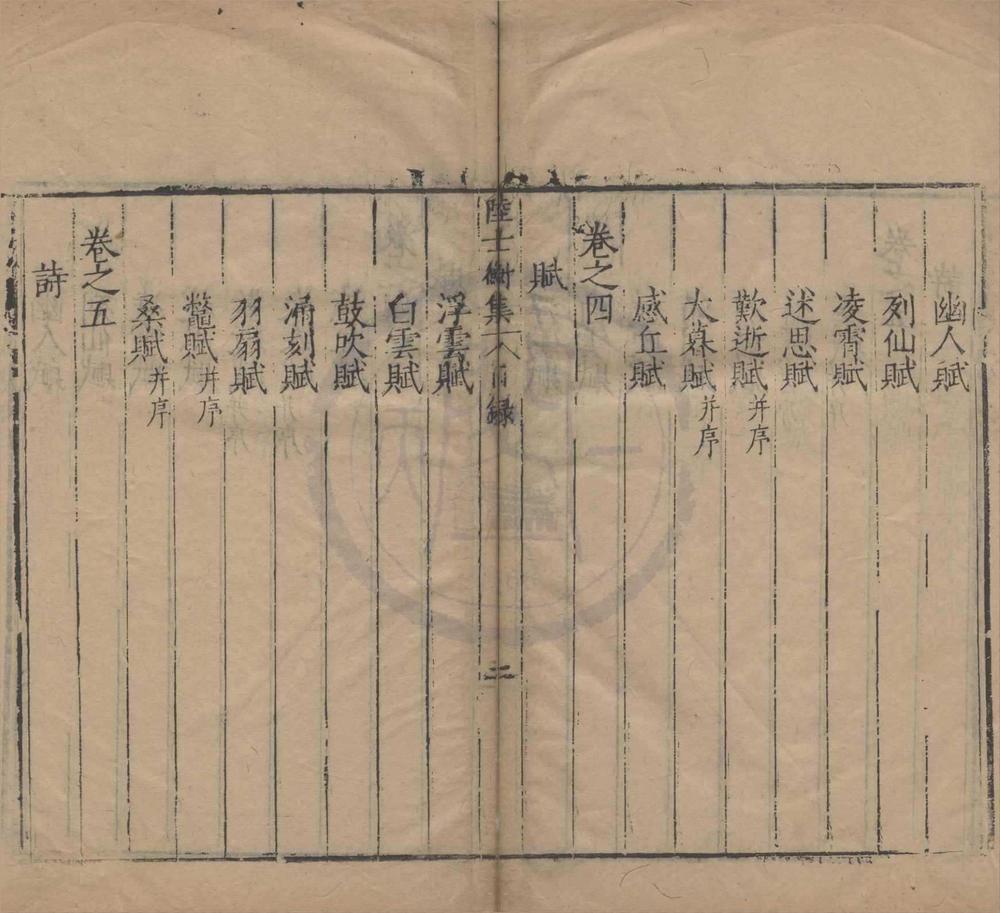 幽人賦
列仙賦
凌霄賦
述思賦
歎逝賦并序
大暮賦并序
感丘賦
卷之四
賦
陸士衡集 目録 二
浮雲賦
白雲賦
鼓吹賦
漏刻賦
羽扇賦
鼈賦并序
桑賦并序
卷之五
詩